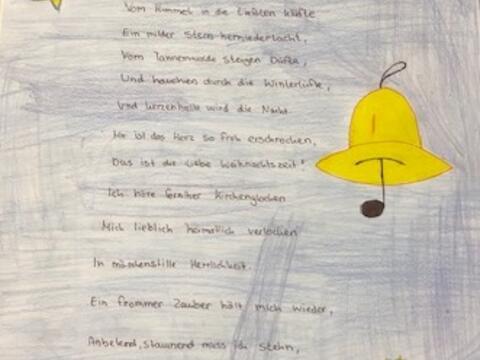 Vom Himmel in die tiefsten Klüfte
Ein milder Stern herniederlacht,
Vom Tannenwalde steigen Düfte,
Und hauchen durch die Winterlüfte,
Und kerzenhelle wird die Nacht.
Mir ist das Herz so froh erschrocken,
Das ist die liebe Weihnachtszeit!
Ich höre fernher Kirchenglocken
Mich lieblich heimatlich verlocken
In märchenstille Herrlichkeit.
Ein frommer Zauber hält mich wieder,
Anbetend, staunend muss ich stehn,